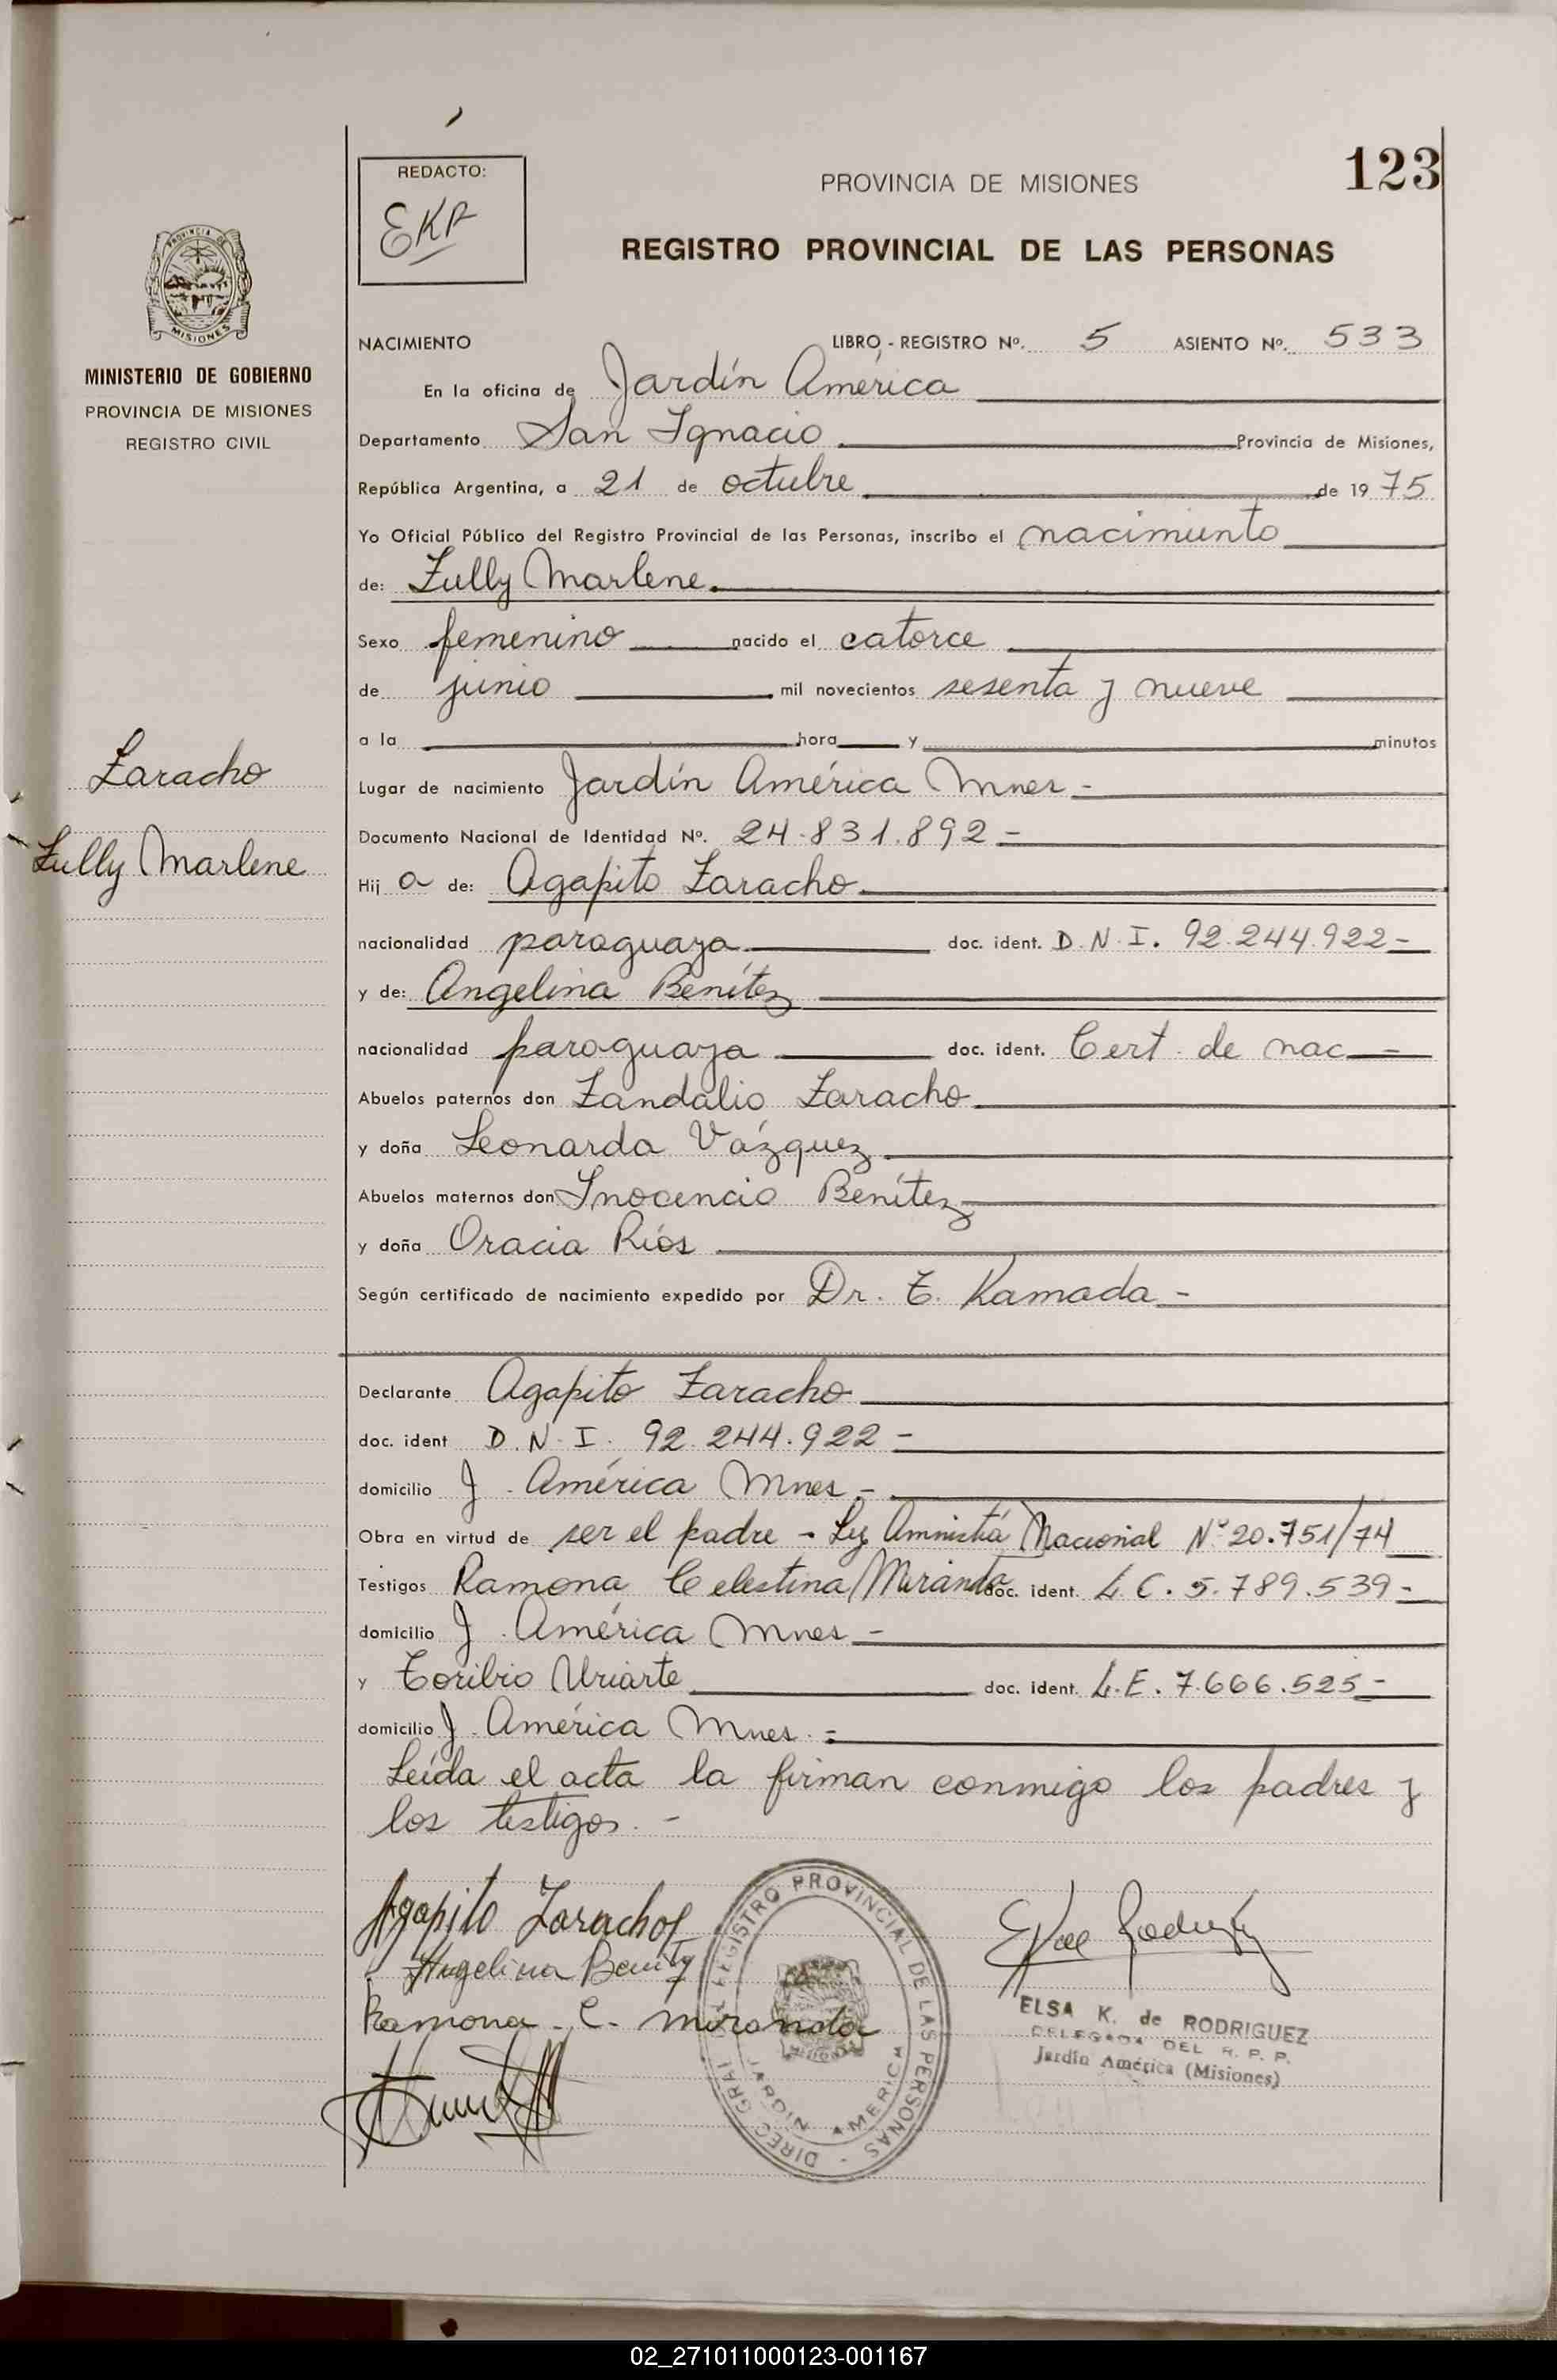 123
REDACTO:
EKR
PROVINCIA DE MISIONES
REGISTRO PROVINCIAL DE LAS PERSONAS
PROVINCIA DE
MISIONES
MINISTERIO DE GOBIERNO
PROVINCIA DE MISIONES
REGISTRO CIVIL
Zaracho
Zully Marlene
NACIMIENTO LIBRO - REGISTRO Nº. 5 ASIENTO Nº. 533
En la oficina de Jardín América
Departamento San Ignacio Provincia de Misiones,
República Argentina, a 21 de octubre de 1975
Yo Oficial Público del Registro Provincial de las Personas, inscribo el nacimiento
de: Zully Marlene.
Sexo femenino nacido el catorce
de junio mil novecientos sesenta y nueve
a la hora y minutos
Lugar de nacimiento Jardín América Mnes -
Documento Nacional de Identidad Nº. 24.831.892 -
Hij a de: Agapito Zaracho
nacionalidad paraguaya doc. ident. D.N.I. 92.244.922 -
y de: Angelina Benítez
nacionalidad paraguaya doc. ident. Cert. de nac -
Abuelos paternos don Zandalio Zaracho
y doña Leonarda Vázquez
Abuelos maternos don Inocencio Benítez
y doña Oracia Ríos
Según certificado de nacimiento expedido por Dr. T. Kamada -
Declarante Agapito Zaracho
doc. ident D.N.I. 92.244.922 -
domicilio J. América Mnes -
Obra en virtud de ser el padre - Ley Amnistía Nacional Nº 20.751/74
Testigos Ramona Celestina Miranda doc. ident. L.C. 5.789.539 -
domicilio J. América Mnes -
y Toribio Uriarte doc. ident. L.E. 7.666.525 -
domicilio J. América Mnes. -
Leída el acta la firman conmigo los padres y
los testigos. -
Agapito Zaracho
Angelina Benitez
Ramona C. Miranda
DIREC. GRAL. REGISTRO PROVINCIAL DE LAS PERSONAS -
JARDIN AMERICA
MISIONES
ELSA K. de RODRIGUEZ
DELEGADA DEL R. P. P.
Jardín América (Misiones)
02_271011000123-001167